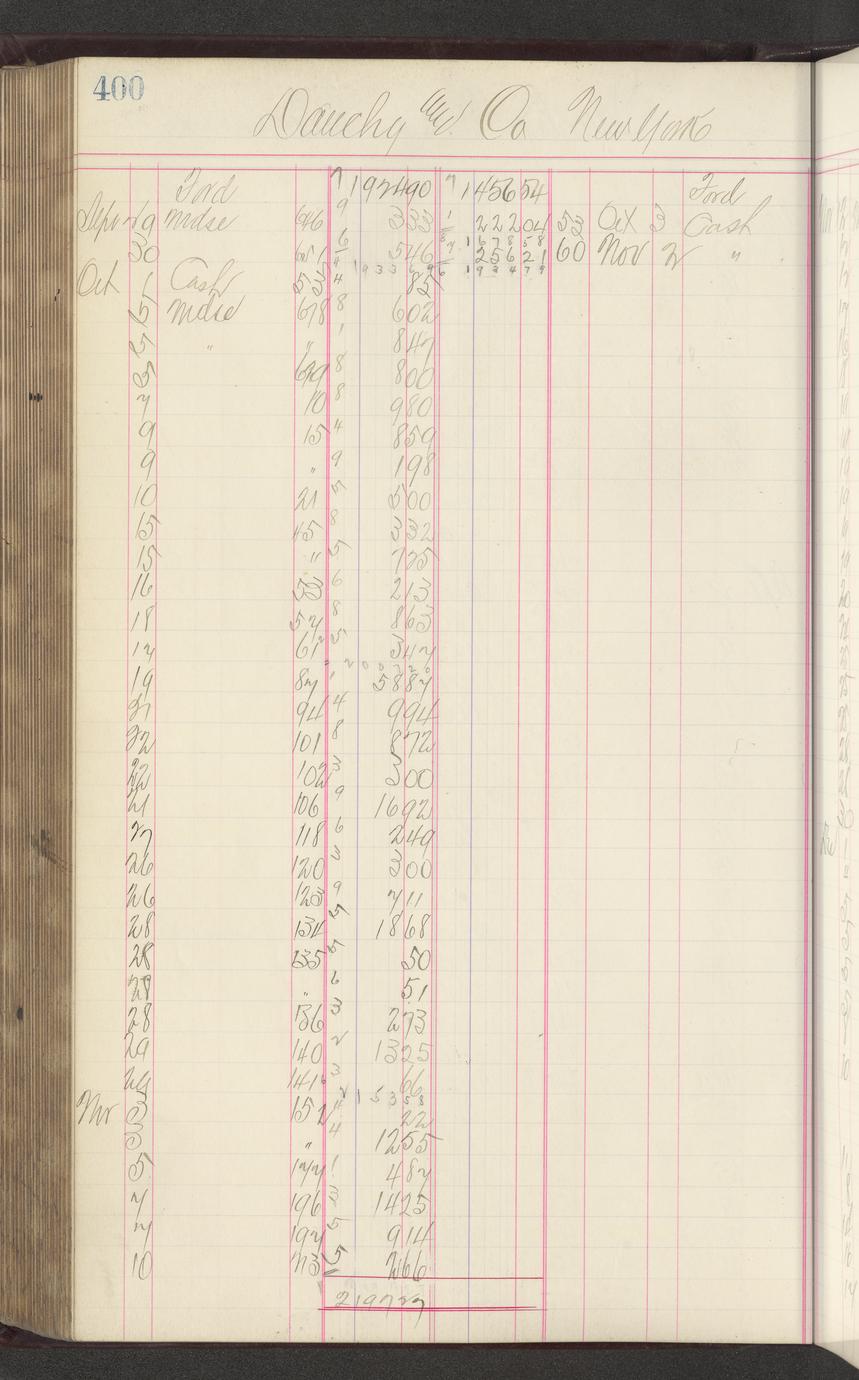 400
Dauchy and Co New York
Ford 192490 7 145654 Ford
29 Mdse 646 9 333 1 22204 53 Oct 3 Cash
30 651 6 546 25621 60 Nov 2 "
Oct 1 Cash 53 4 85
5 Mdse 678 8 602
5 " " 1 847
5 699 8 800
7 10 8 980
9 15 4 859
9 " 9 198
10 21 500
15 45 8 332
15 " 5 725
16 53 6 213
18 57 8 863
17 61 5 347
19 87 1 5887
21 94 4 994
22 101 8 872
22 102 3 300
21 106 9 1692
27 118 6 249
26 120 3 300
26 123 9 711
28 134 1868
28 135 50
28 " 6 51
28 136 3 273
29 140 2 1325
29 141 3 66
Nov 3 152 4 22
3 " 4 1255
5 177 1 487
7 196 3 1425
7 197 5 914
10 213 5 266
219727